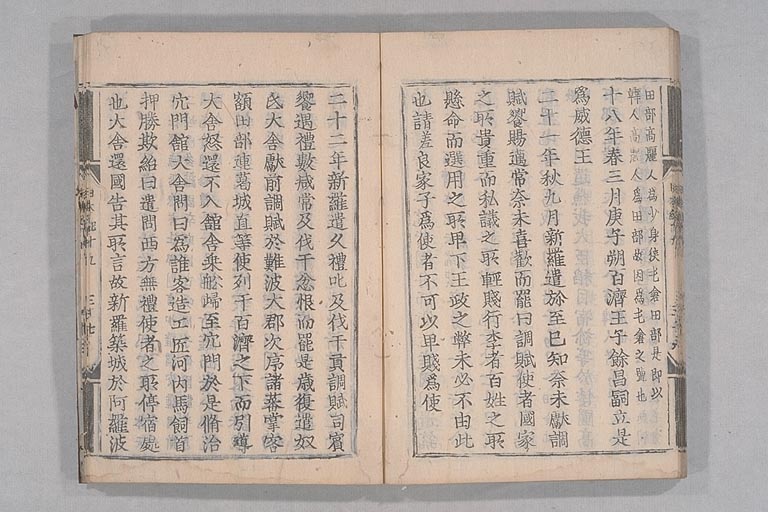 田部高麗人為小身狹屯倉田部是即以
韓人高麗人為田部故因為屯倉之號也
十八年春三月庚子朔百濟王子餘昌嗣立是
爲威德王
二十一年秋九月新羅遣弥至己知奈末獻調
賦饗賜邁常奈末喜歡而罷曰調賦使者國家
之所貴重而私議之所輕賤行李者百姓之所
懸命而選用之所卑下王政之弊未必不由此
也請差良家子爲使者不可以卑賤爲使
二十二年新羅遣久禮叱及伐干貢調賦司賓
饗遇禮數減常及伐干忿恨而罷是歲復遣奴
氐大舍獻前調賦於難波大郡次序諸蕃掌客
額田部連葛城直等使列于百濟之下而引導
大舍怒還不入館舍乘舩歸至穴門於是脩治
穴門館大舍問曰爲誰客造工匠河內馬飼首
押勝欺紿曰遣問西方無禮使者之所停宿處
也大舍還國告其所言故新羅築城於阿羅波